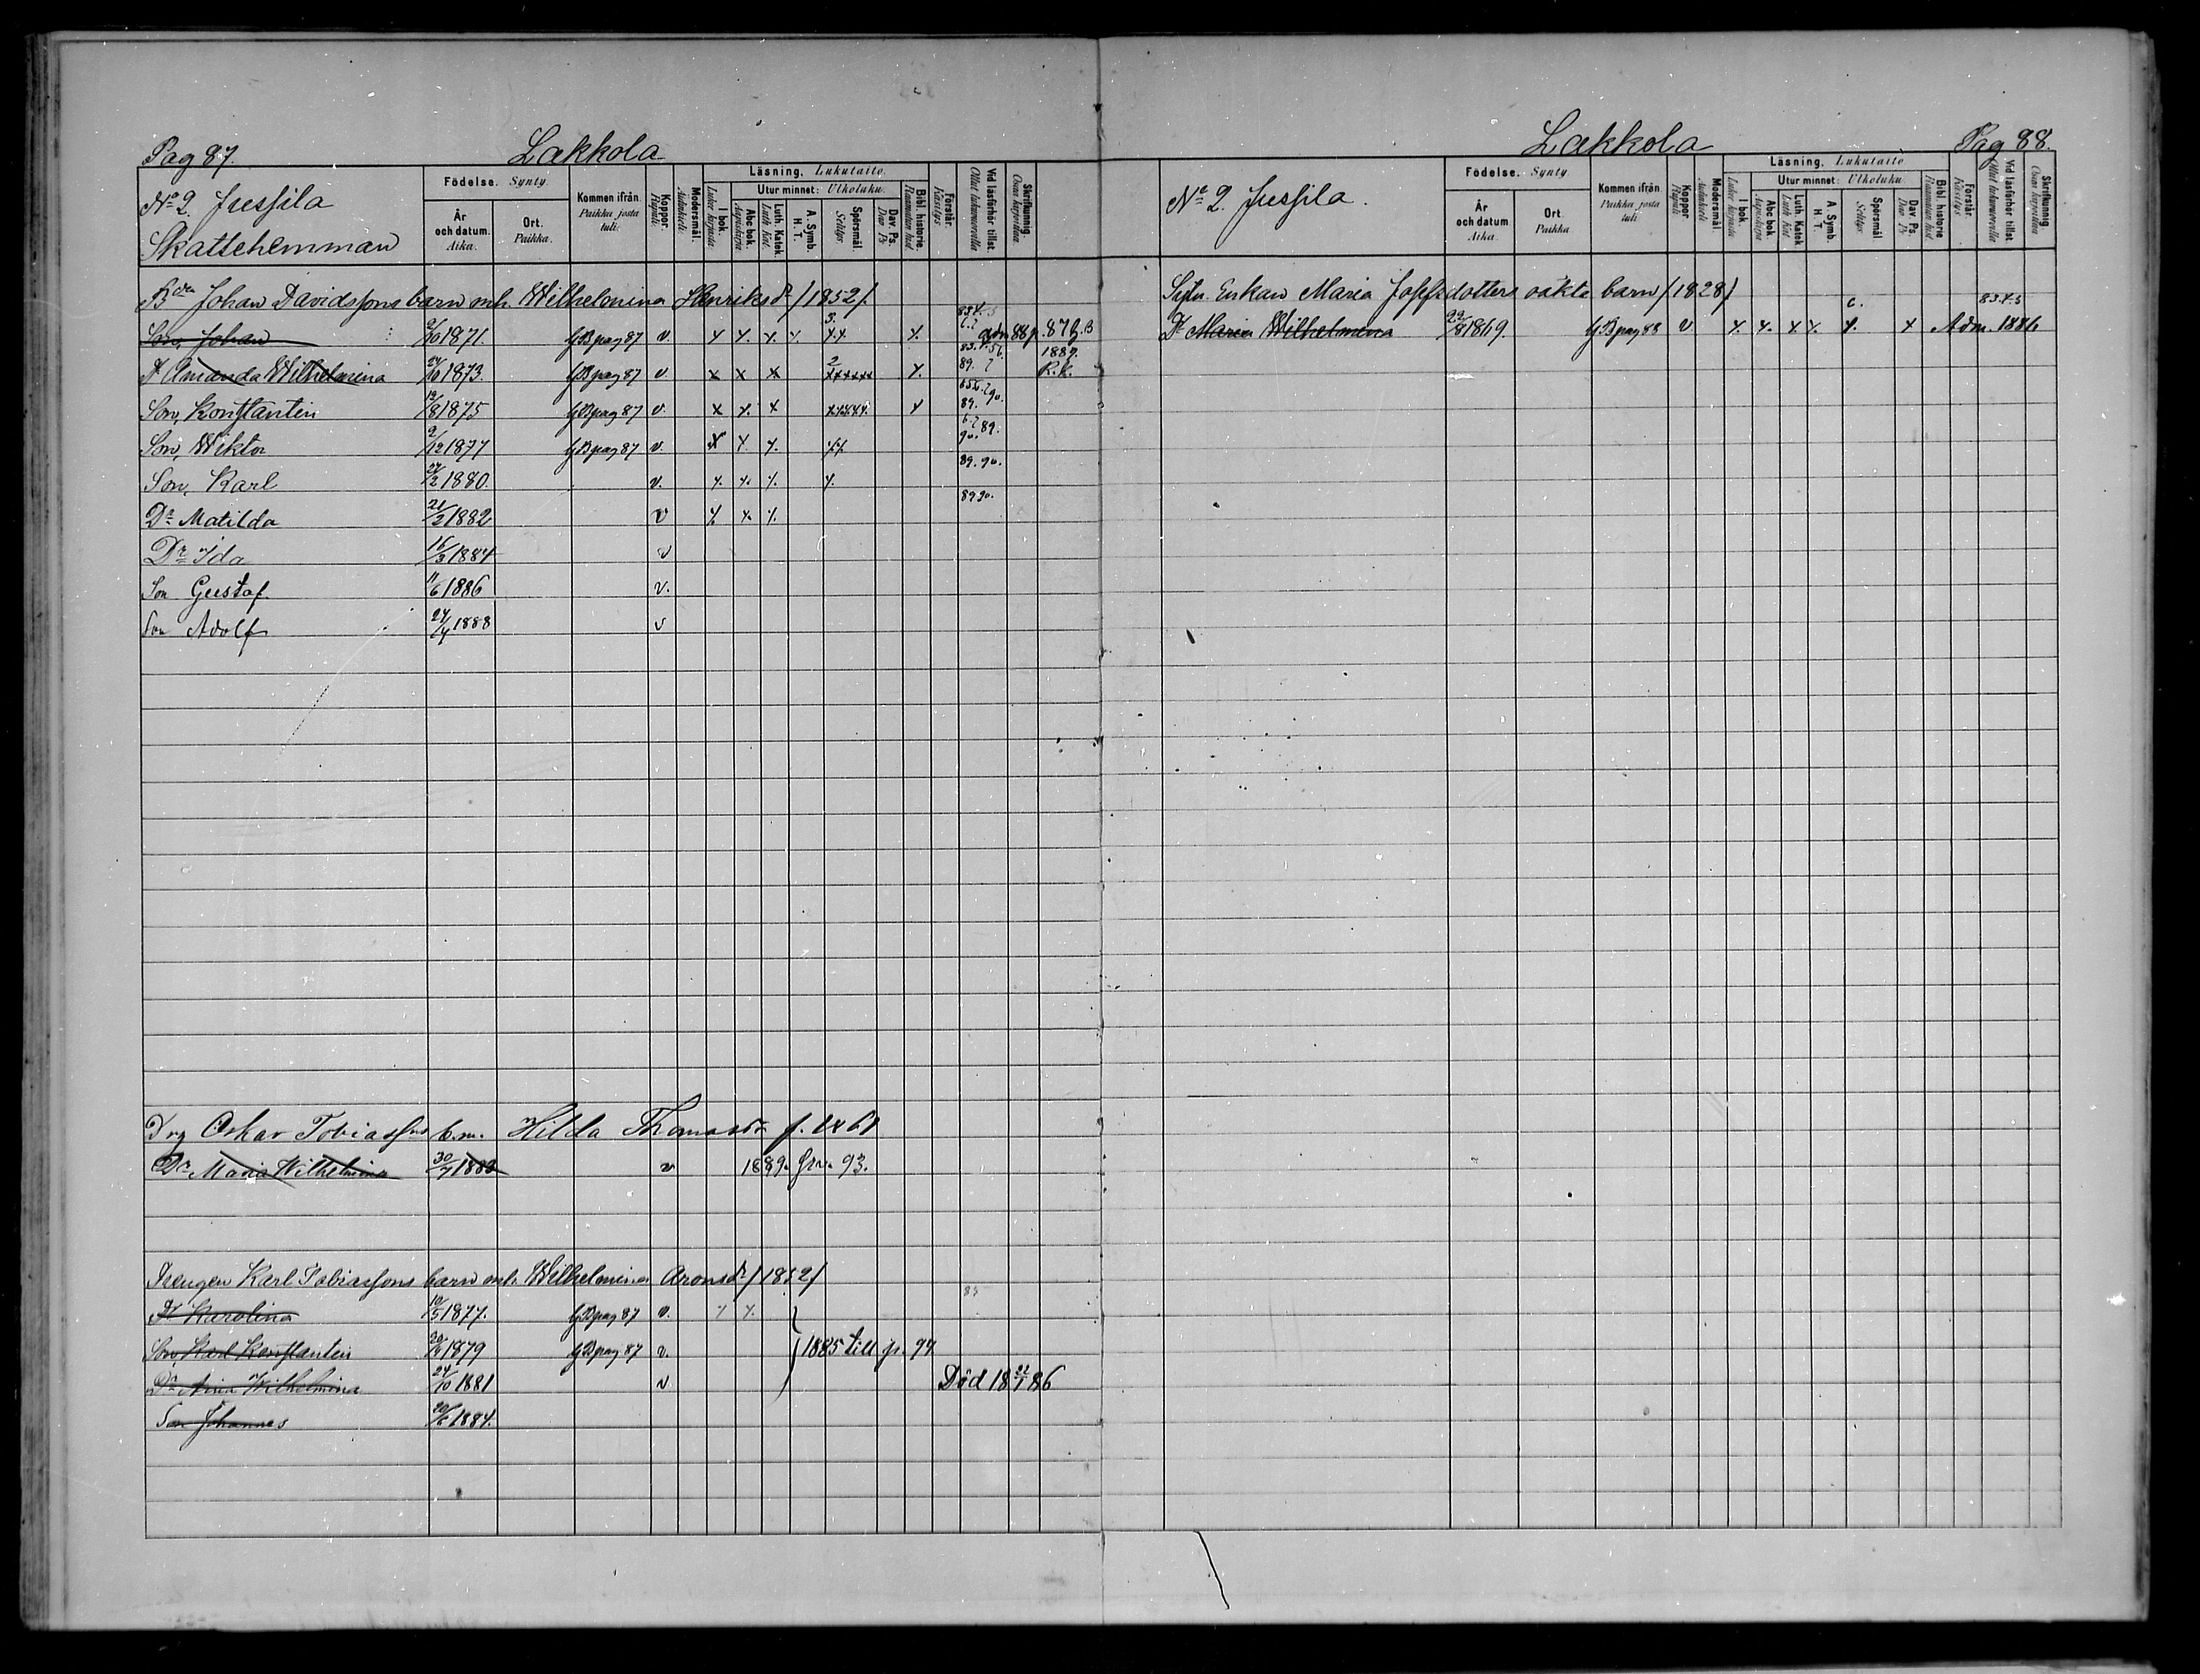 Pag 87. Lakkola
No 2. Jussila
Skattehemman
Födelse. Synty.
År och datum. Aika.
Ort. Paikka.
Kommen ifrån. Paikka josta tuli.
Koppor. Rupuli.
Modersmål. Äidinkieli.
Läsning. Lukutaito.
I bok. Lukee kirjasta
Utur minnet: Ulkoluku.
Abc bok. Aapiskirja
Luth. Katek. Luth. Kat.
A. Symb. H. T.
Spörsmål. Selitys.
Dav. Ps. Dav. Ps
Bibl. historie. Raamatun hist.
Förstår. Käsitys
Vid läsförhör tillst. Ollut lukuvuorolla
Skrifkunnig. Osaa kirjoittaa
Bdn Johan Davidssons barn m.h. Wilhelmina Henriksdr /1852/.
Son, Johan 9/10 1871. GB pag 87 v. 3. Adm 88 p. 87 G.B
Dr Amanda Wilhelmina 24/10 1873. GB pag 87 v 2 89. 1889. R.k.
Son, Konstantin 13/8 1875 GB pag 87 v. 89. 90.
Son, Wiktor 2/12 1877 GB pag 87 v. 89. 90.
Son, Karl 24/2 1880. v. 89. 90.
Dr Matilda 21/2 1882 v 89 90.
Dr Ida 16/3 1884 v
Son Gustaf 11/6 1886 v.
Son Adolf 24/4 1888 v
Drg Oskar Tobiassons b.m. Hilda Thomasdr f. 1861
Dr Maria Wilhelmina 30/7 1883 v 1889. 93.
Drengen Karl Tobiassons barn m.h. Wilhelmina Aronsdr /1852/
Dr Karolina 10/5 1877. GB pag 87 v. 85
Son, Karl Konstantin 1879 GB pag 87 v. 1885 till p. 94
Dr Aina Wilhelmina 24/10 1881 v Död 18 22/1 86
Son Johannes 20/6 1884.
Lakkola Pag 88.
No 2. Jussila.
Födelse. Synty.
År och datum Aika.
Ort. Paikka
Kommen ifrån. Paikka josta tuli.
Koppor Rupuli
Modersmål. Äidinkieli
Läsning. Lukutaito
I bok. Lukee kirjasta
Utur minnet: Ulkoluku.
Abc bok. Aapiskirja
Luth. Katek. Luth. Kat.
A. Symb. H. T.
Spörsmål Selitys.
Dav. Ps. Dav. Ps
Bibl. historie Raamatun hist.
Förstår. Käsitys
Vid läsförhör tillst. Ollut lukuvuorolla
Skrifkunnig. Osaa kirjoittaa
Enkan Maria Josefsdotters oäkta barn /1828/
Dr Maria Wilhelmina 22/8 1869. GB pag 88 v c. 83.4.5 Adm. 1886